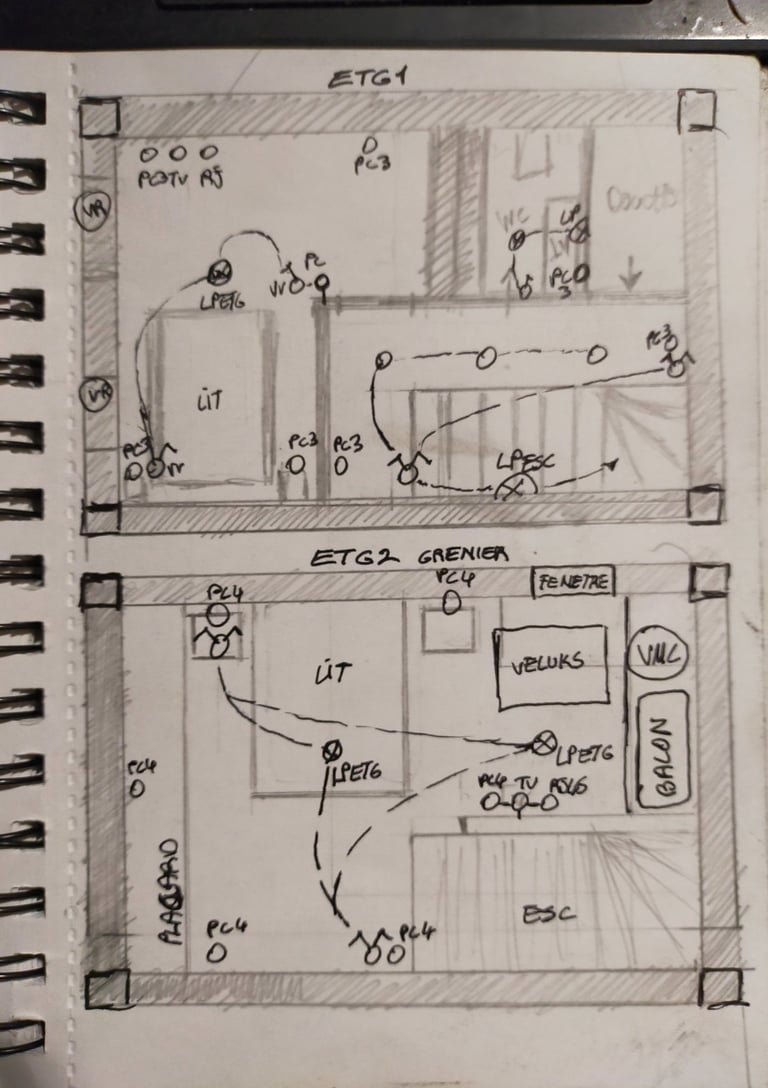 ETG1
PC3 TV RJ
PC3
VR
WC
LP
LV
Douche
PC
3
LPETG
VV
PC
VR
LIT
PC3
PC3
VV
PC3
PC3
LPESC
ETG2 GRENIER
PC4
PC4
FENETRE
LIT
VELUKS
VMC
LPETG
LPETG
BALON
PC4 TV RJ45
PC4
PLACARD
PC4
PC4
ESC